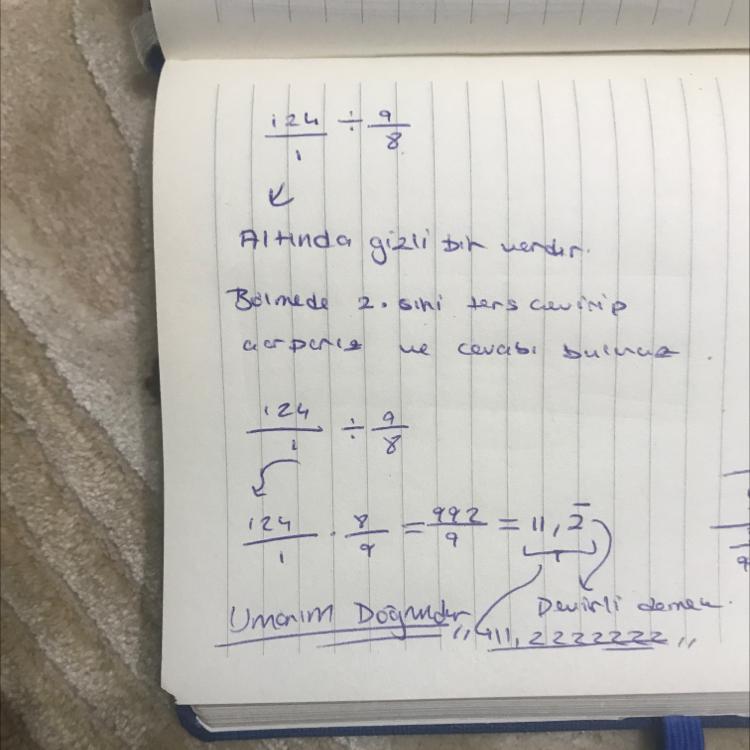 124/1 ÷ 9/8
Altında gizli bir vardır.
Bölmede 2.sini ters çevirip
çarparız ve cevabı buluruz.
124/1 ÷ 9/8
124/1 . 8/9 = 992/9 = 11,2̅
Umarım Doğrudur Devirli demek.
,, 11,2222222 ,,